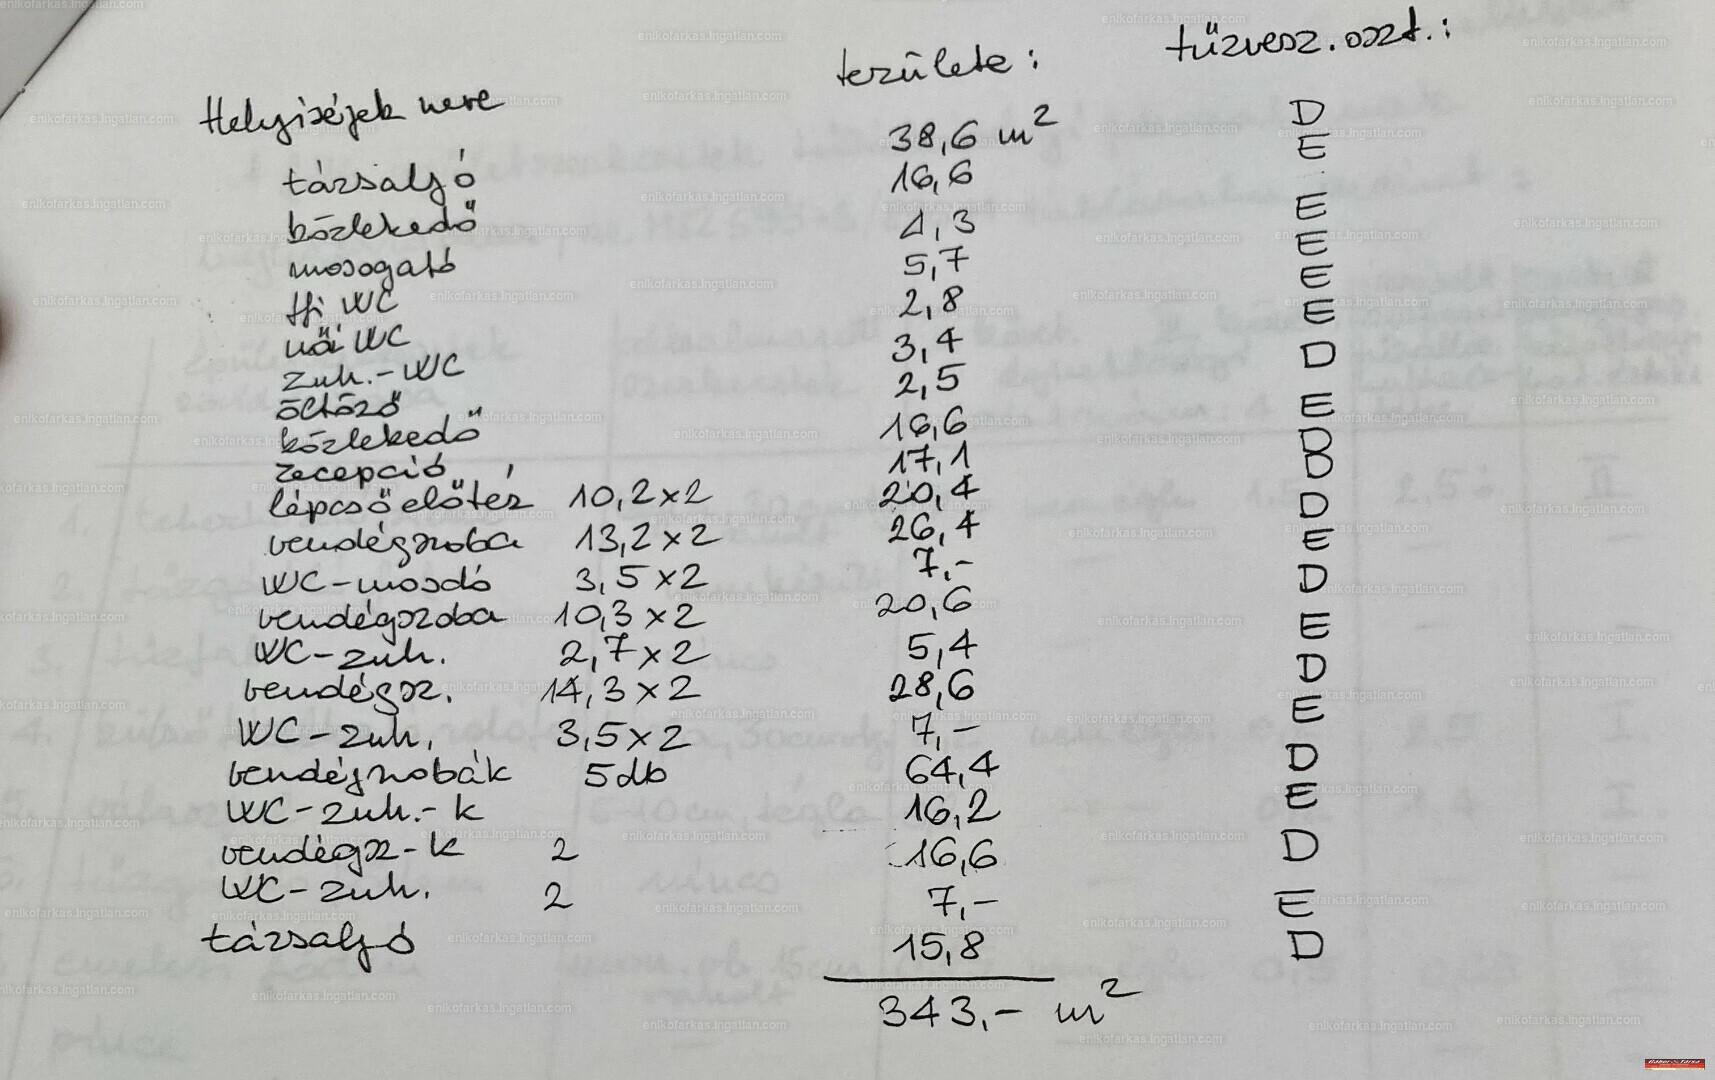 Helyiségek neve területe : tűzvesz. oszt. :
társalgó 38,6 m² D
közlekedő 16,6 E
mosogató 4,3 E
ffi WC 5,7 E
női WC 2,8 E
zuh.-WC 3,4 E
öltöző 2,5 D
közlekedő 16,6 E
recepció 17,1 D
lépcső előtér 10,2x2 20,4 D
vendégszoba 13,2x2 26,4 D
WC-mosdó 3,5x2 7,- E
vendégszoba 10,3x2 20,6 D
WC-zuh. 2,7x2 5,4 E
vendégsz. 14,3x2 28,6 D
WC-zuh. 3,5x2 7,- E
vendégszobák 5 db 64,4 D
WC-zuh.-k 16,2 E
vendégsz-k 2 16,6 D
WC-zuh. 2 7,- E
társalgó 15,8 D
343,- m²
enikofarkas.ingatlan.com